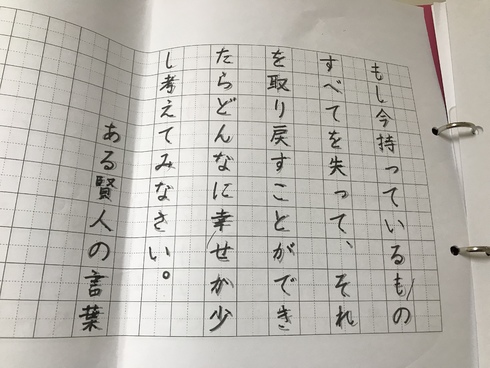 もし今持っているもの
すべてを失って、それ
を取り戻すことができ
たらどんなに幸せか少
し考えてみなさい。
ある賢人の言葉